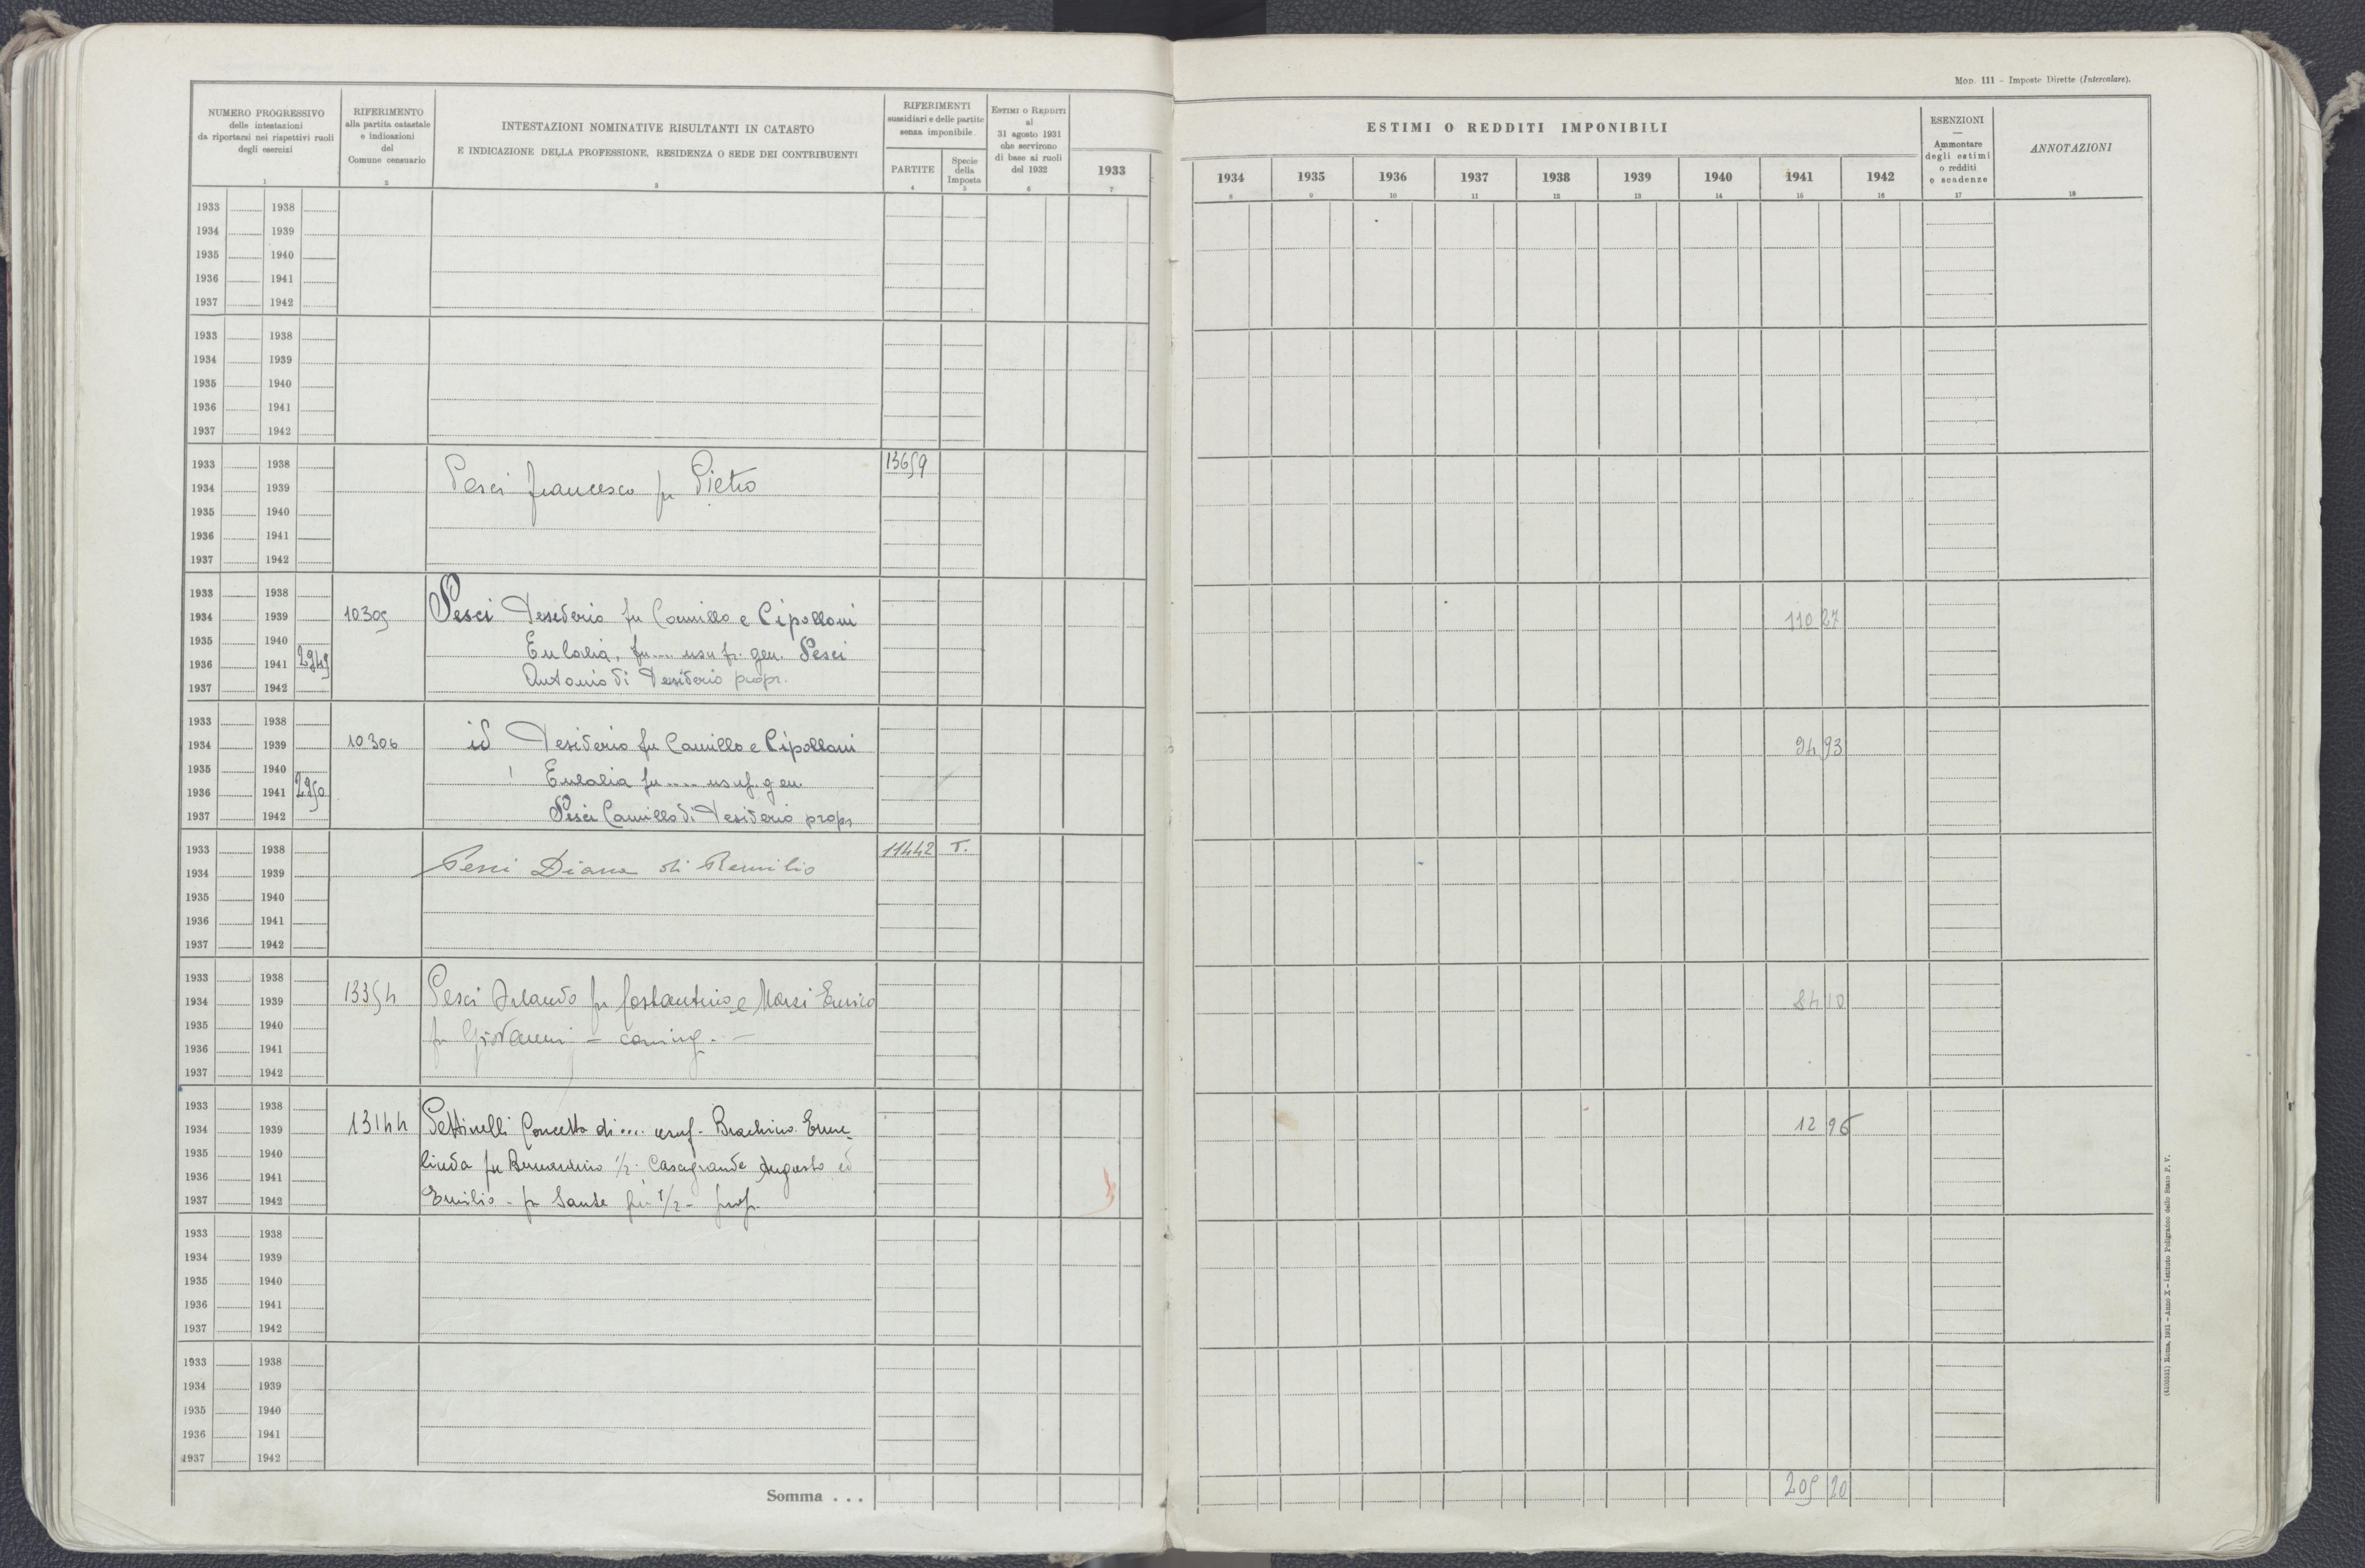 Mod. 111 – Imposte Dirette (Intercalare).
NUMERO PROGRESSIVO
delle intestazioni
da riportarsi nei rispettivi ruoli
degli esercizi
1
RIFERIMENTO
alla partita catastale
e indicazioni
del
Comune censuario
2
INTESTAZIONI NOMINATIVE RISULTANTI IN CATASTO
E INDICAZIONE DELLA PROFESSIONE, RESIDENZA O SEDE DEI CONTRIBUENTI
3
RIFERIMENTI
sussidiari e delle partite
senza imponibile
PARTITE
4
Specie
della
Imposta
5
ESTIMI O REDDITI
al
31 agosto 1931
che servirono
di base ai ruoli
del 1932
6
1933
7
ESTIMI O REDDITI IMPONIBILI
1934 1935 1936 1937 1938 1939 1940 1941 1942
8 9 10 11 12 13 14 15 16
ESENZIONI
—
Ammontare
degli estimi
o redditi
e scadenze
17
ANNOTAZIONI
18
1933 1938
1934 1939
1935 1940
1936 1941
1937 1942
1933 1938
1934 1939
1935 1940
1936 1941
1937 1942
1933 1938 13659
1934 1939 Pesci Francesco fu Pietro
1935 1940
1936 1941
1937 1942
1933 1938
1934 1939 10305 Pesci Desiderio fu Camillo e Cipolloni 110 27
1935 1940 Eulalia, fu.... usufr. gen. Pesci
1936 1941 2949
1937 1942 Antonio di Desiderio propr.
1933 1938
1934 1939 10306 id Desiderio fu Camillo e Cipolloni 94 93
1935 1940 Eulalia fu.... usuf. gen.
1936 1941 2950
1937 1942 Pesci Camillo di Desiderio propr
1933 1938 11442 T.
1934 1939 Pesci Diana di Romilio
1935 1940
1936 1941
1937 1942
1933 1938
1934 1939 13354 Pesci Orlando fu Costantino e Marsi Enrica 84 10
1935 1940 fu Giovanni – coniug. –
1936 1941
1937 1942
1933 1938
1934 1939 13144 Pettinelli Concetta di.... usuf. Erme- 12 96
1935 1940 linda fu Bernardino 1/2. Casagrande Augusto ed
1936 1941
1937 1942 Emilio – fu Sante 1/2 –
1933 1938
1934 1939
1935 1940
1936 1941
1937 1942
1933 1938
1934 1939
1935 1940
1936 1941
1937 1942
Somma . . . 205 20
(4105531) Roma, 1931 – Anno X – Istituto Poligrafico dello Stato P. V.